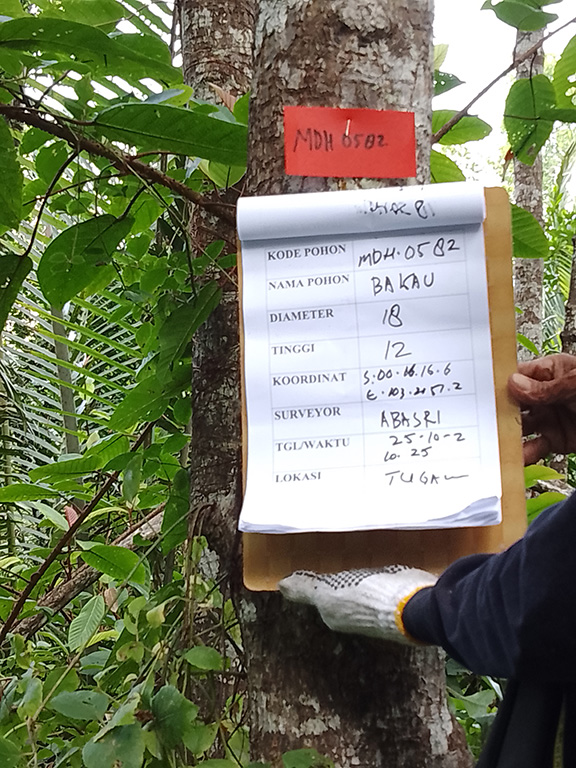 MDH 0582
KODE POHON MDH.0582
NAMA POHON BAKAU
DIAMETER 18
TINGGI 12
KOORDINAT S.00.16.16.6
E.103.
SURVEYOR ABASRI
TGL/WAKTU 25-10-2
10.25
LOKASI